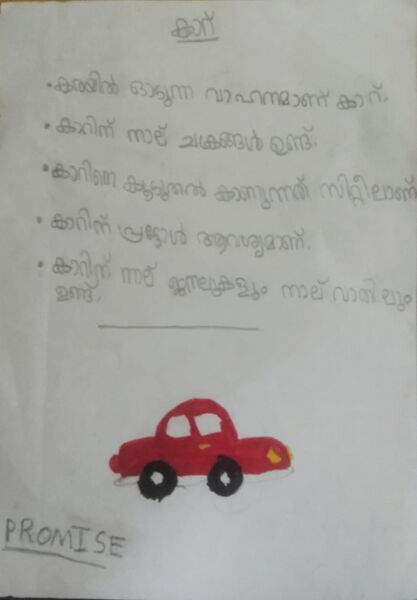 കാറ്
• കരയിൽ ഓടുന്ന വാഹനമാണ് കാറ്.
• കാറിന് നാല് ചക്രങ്ങൾ ഉണ്ട്.
• കാറിനെ കൂടുതൽ കാണുന്നത് സിറ്റീലാണ്
• കാറിന് പ്രട്ടോൾ ആവശ്യമാണ്.
• കാറിന് നാല് ജനലുകളും നാല് വാതിലും
ഉണ്ട്.
PROMISE